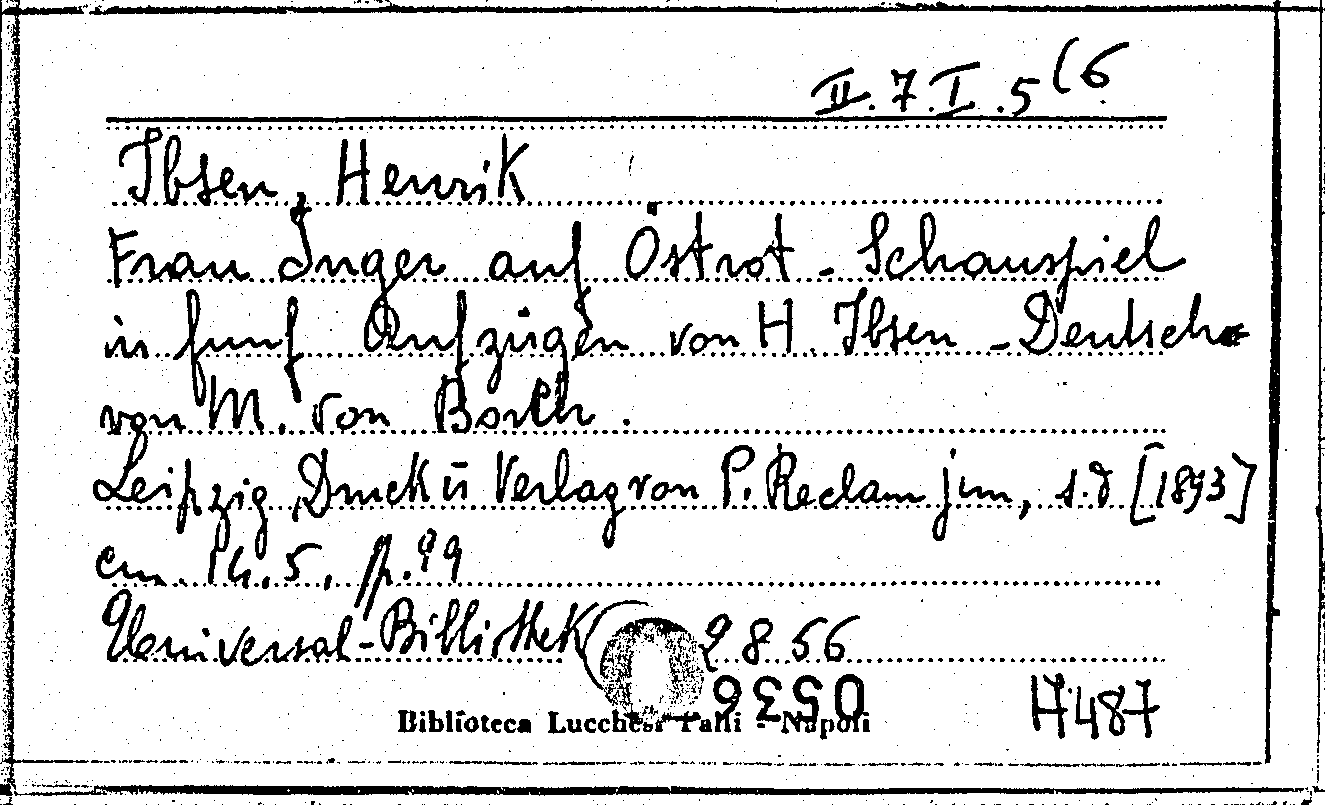 II.7.I.5(6
Ibsen, Henrik
Frau Inger auf Östrot - Schauspiel
in funf Aufzügen von H. Ibsen - Deutsch
von M. von Borch.
Leipzig, Druck ü Verlag von P. Reclam jun, s.d [1893]
cm. 14.5, pp. 99
Universal-Bibliothek 2856
05536
Biblioteca Lucchesi Palli - Napoli
H487